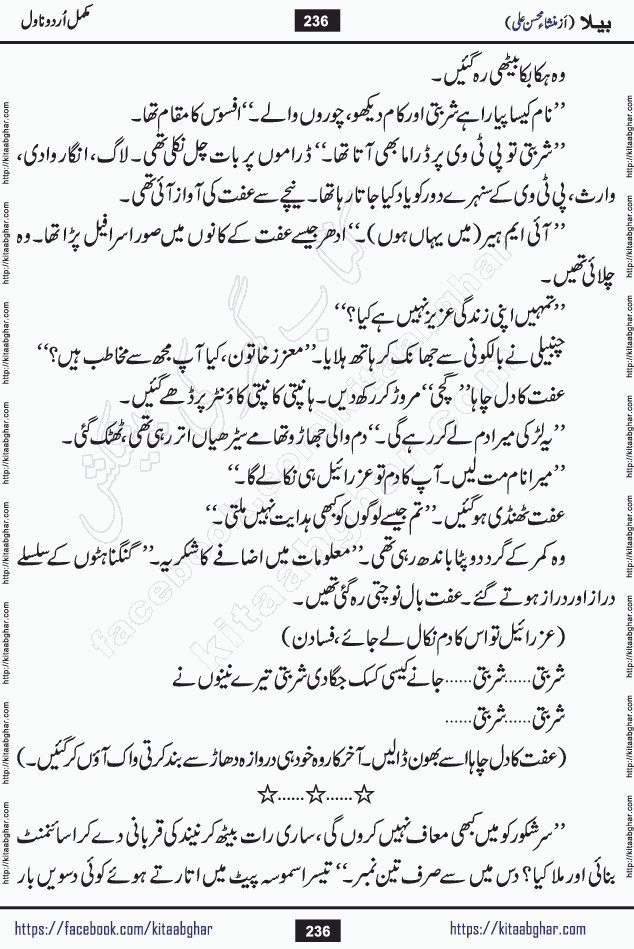 بیلا (از منشاء محسن علی) 236 مکمل اُردو ناول
وہ ہکا بکا بیٹھی رہ گئیں۔
’’نام کیسا پیارا ہے شربتی اور کام دیکھو، چوروں والے۔‘‘ افسوس کا مقام تھا۔
’’شربتی تو پی ٹی وی پر ڈراما بھی آتا تھا۔‘‘ ڈراموں پر بات چل نکلی تھی۔ لاگ، انگار وادی،
وارث، پی ٹی وی کے سنہرے دور کو یاد کیا جاتا رہا تھا۔ نیچے سے عفت کی آواز آئی تھی۔
’’آئی ایم ہیر (میں یہاں ہوں)۔‘‘ ادھر جیسے عفت کے کانوں میں صور اسرافیل پڑا تھا۔ وہ
چلائی تھیں۔
’’تمہیں اپنی زندگی عزیز نہیں ہے کیا؟‘‘
چنبیلی نے بالکونی سے جھانک کر ہاتھ ہلایا۔ ’’معزز خاتون، کیا آپ مجھ سے مخاطب ہیں؟‘‘
عفت کا دل چاہا ’’گچی‘‘ مروڑ کر رکھ دیں۔ ہانپتی کانپتی کاؤنٹر پر ڈھے گئیں۔
’’یہ لڑکی میرا دم لے کر رہے گی۔‘‘ دم والی جھاڑو تھامے سیڑھیاں اتر رہی تھی، ٹھٹک گئی۔
’’میرا نام مت لیں۔ آپ کا دم تو عزرائیل ہی نکالے گا۔‘‘
عفت ٹھنڈی ہو گئیں۔ ’’تم جیسے لوگوں کو کبھی ہدایت نہیں ملتی۔‘‘
وہ کمر کے گرد دوپٹا باندھ رہی تھی۔ ’’معلومات میں اضافے کا شکریہ۔‘‘ گنگناہٹوں کے سلسلے
دراز اور دراز ہوتے گئے۔ عفت بال نوچتی رہ گئی تھیں۔
(عزرائیل تو اس کا دم نکال لے جائے، فسادن)
شربتی......شربتی......جانے کیسی کسک جگا دی شربتی تیرے نینوں نے
شربتی......شربتی......
(عفت کا دل چاہا اسے بھون ڈالیں۔ آخر کار وہ خود ہی دروازہ دھاڑ سے بند کرتی واک آؤٹ کر گئیں۔)
☆......☆......☆
’’سر شکور کو میں کبھی معاف نہیں کروں گی، ساری رات بیٹھ کر نیند کی قربانی دے کر اسائنمنٹ
بنائی اور ملا کیا؟ دس میں سے صرف تین نمبر۔‘‘ تیسرا سموسہ پیٹ میں اتارتے ہوئے کوئی دسویں بار
https://facebook.com/kitaabghar 236 http://kitaabghar.com
http://kitaabghar.com http://kitaabghar.com http://kitaabghar.com http://kitaabghar.com http://kitaabghar.com http://kitaabghar.com http://kitaabghar.com http://kitaabghar.com
http://kitaabghar.com http://kitaabghar.com http://kitaabghar.com http://kitaabghar.com http://kitaabghar.com http://kitaabghar.com http://kitaabghar.com http://kitaabghar.com
کتاب گھر کی پیشکش
facebook.com/kitaabghar
kitaabghar.com